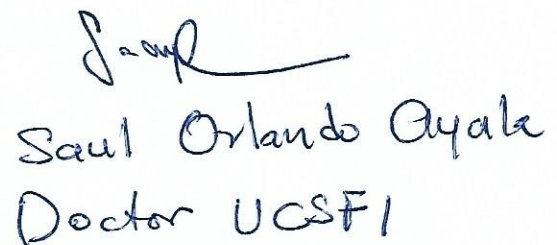 Saul Orlando Ayala
Doctor UCSFI